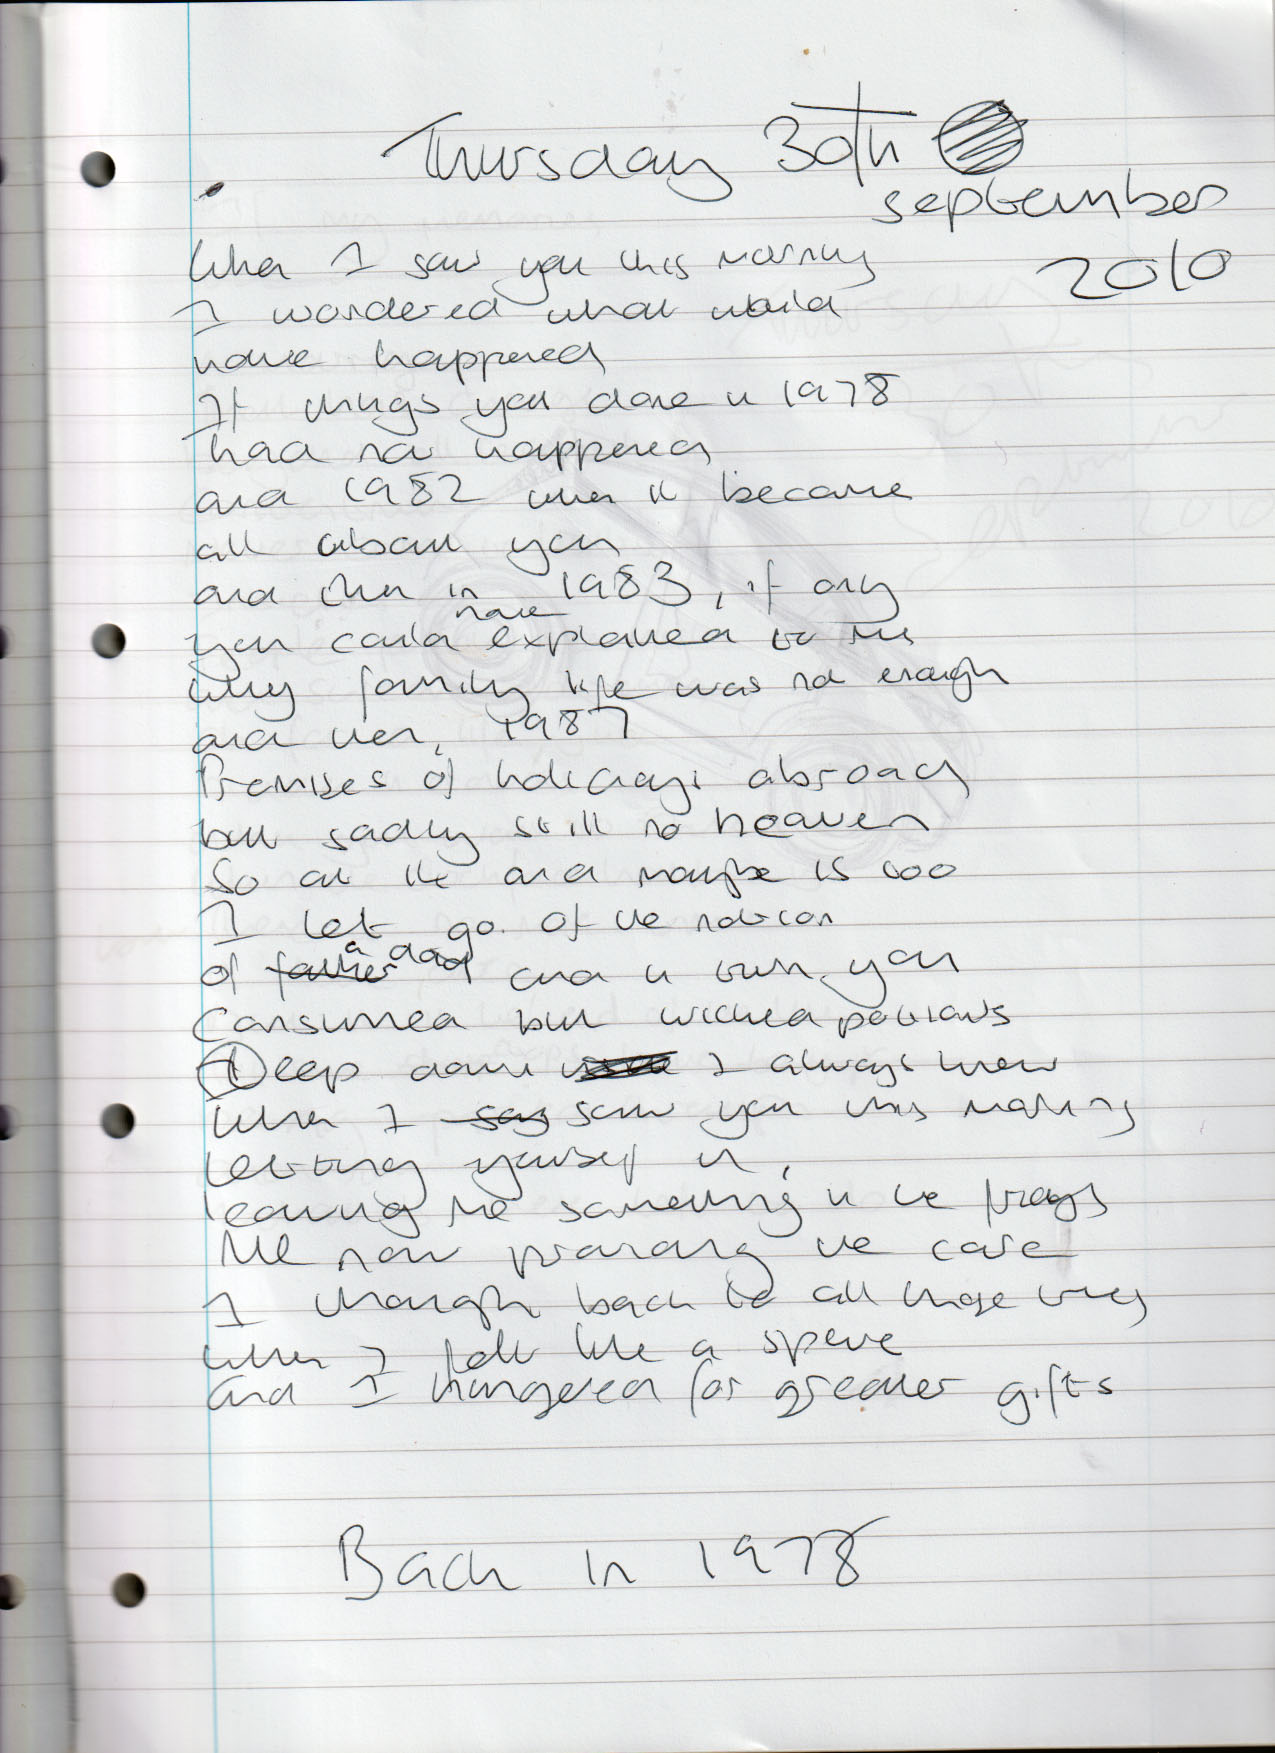 Thursday 30th
September
2010
When I saw you this morning
I wondered what would
have happened
If things you done in 1978
had not happened
and 1982 when it became
all about you
and then in 1983, if only
have
you could explained to me
why family life was not enough
and then, 1987
Promises of holidays abroad
but sadly still no heaven
So at the and maybe is too
I let go of the notion
a dad
of father and in turn you
Consumed but wicked potions
Deep down I always knew
When I say saw you this morning
letting yourself in,
leaving me something in the
Me now the case
I thought back to all those
when I felt like a
And I hungered for greater gifts
Back in 1978